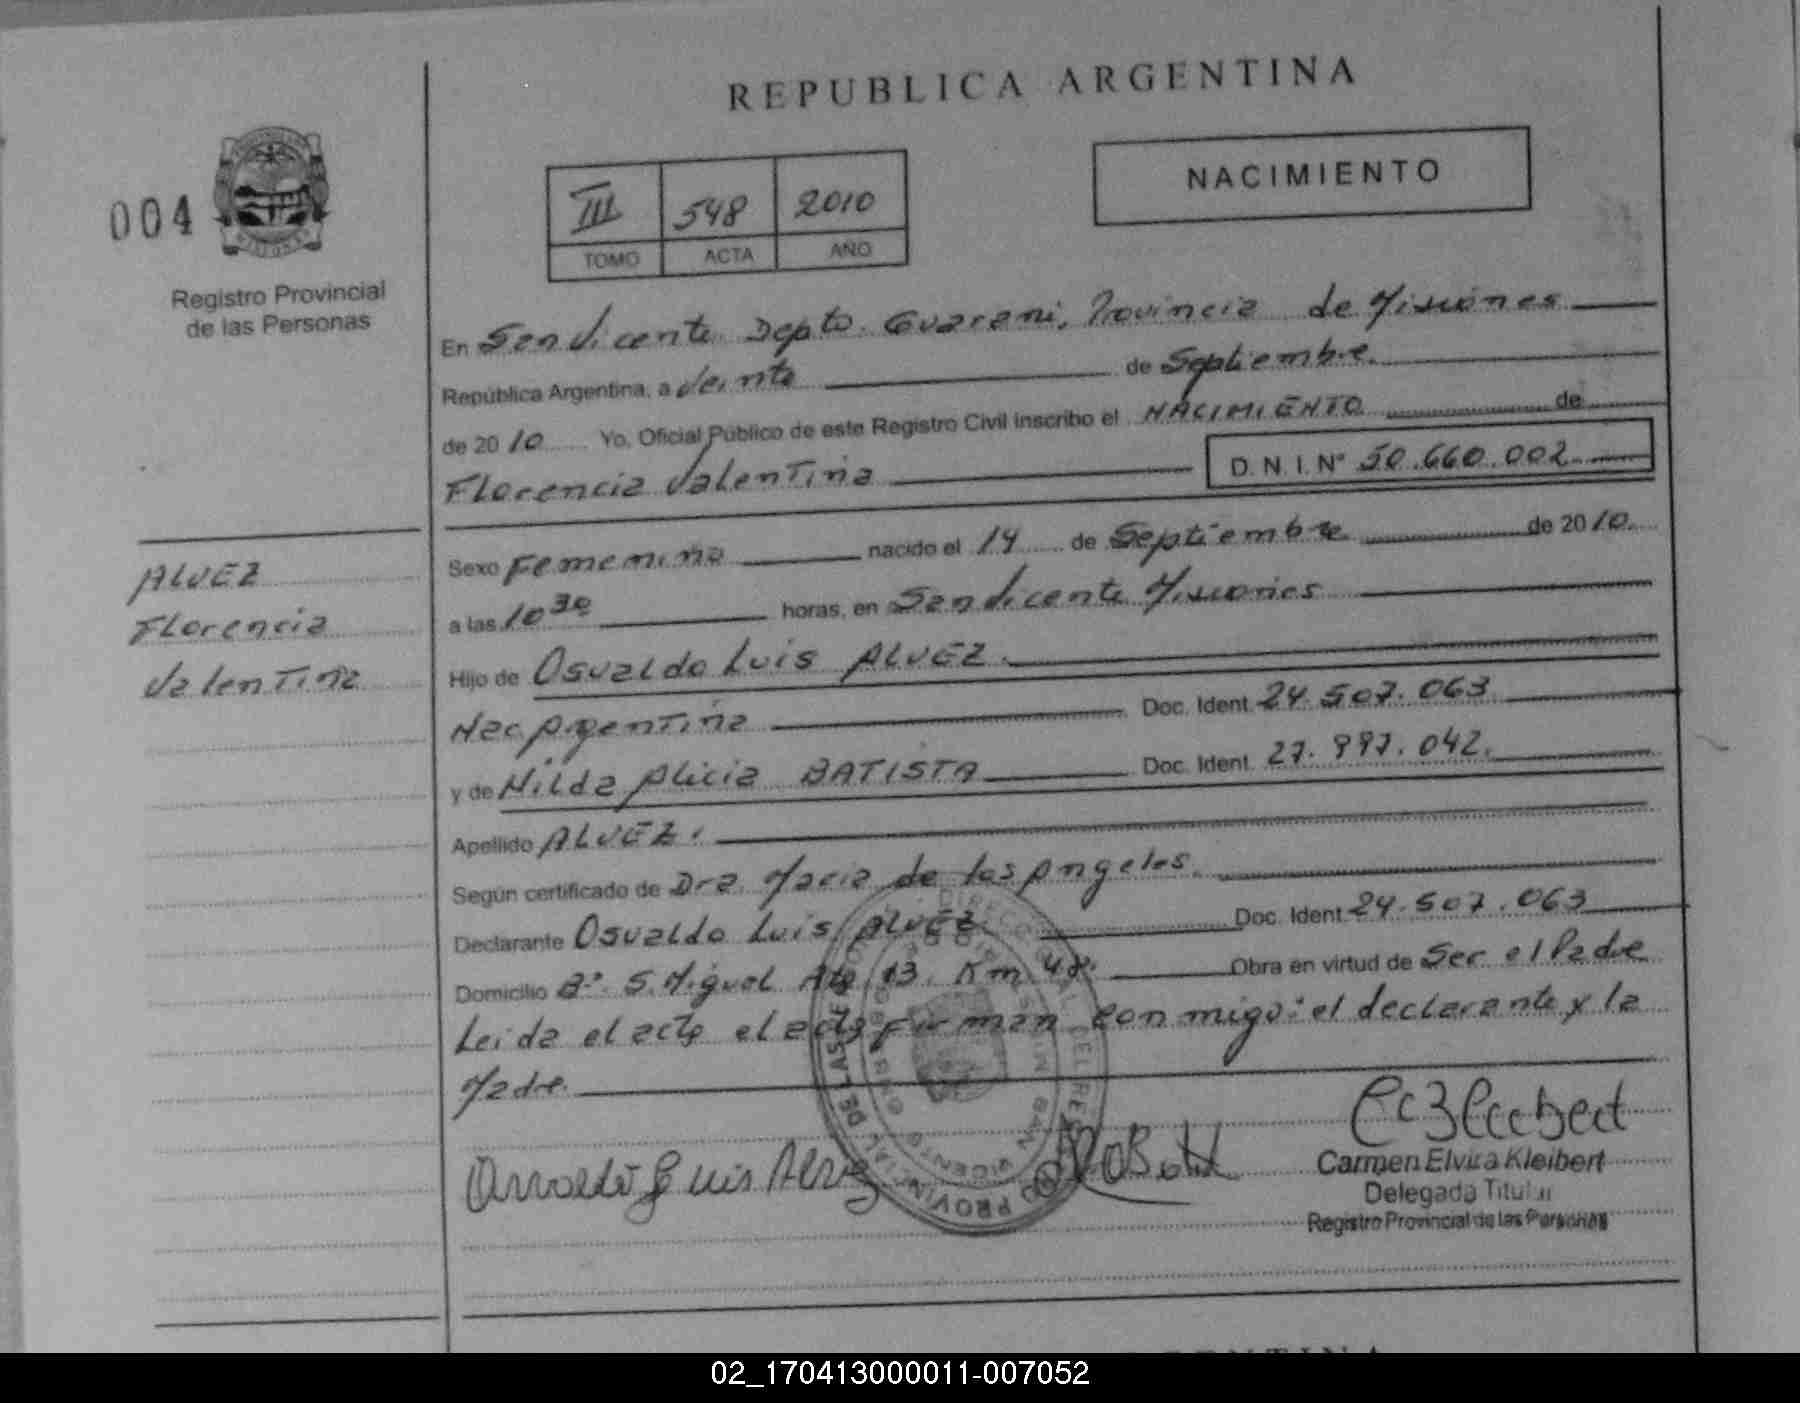 REPUBLICA ARGENTINA
004
Registro Provincial
de las Personas
III 548 2010
TOMO ACTA AÑO
NACIMIENTO
En San Vicente Depto. Guarani, Provincia de Misiones
República Argentina, a veinte de Septiembre
de 2010 Yo, Oficial Público de este Registro Civil inscribo el NACIMIENTO de
Florencia Valentina D. N. I. N° 50.660.002
ALVEZ
Florencia
Valentina
Sexo Femenina nacido el 14 de Septiembre de 2010
a las 10 30 horas, en San Vicente Misiones
Hijo de Osvaldo Luis ALVEZ
Nac Argentina Doc. Ident. 24.507.063
y de Nilda Alicia BATISTA Doc. Ident. 27.997.042
Apellido ALVEZ.
Según certificado de Dra. Maria de los Angeles.
Declarante Osvaldo Luis ALVEZ Doc. Ident. 24.507.063
Domicilio B°. S. Miguel Km Obra en virtud de Ser el Padre
Leida el acta el acta firman conmigo: el declarante y la
Madre.
Carmen Elvira Kleibert
Delegada Titular
Registro Provincial de las Personas
02_170413000011-007052